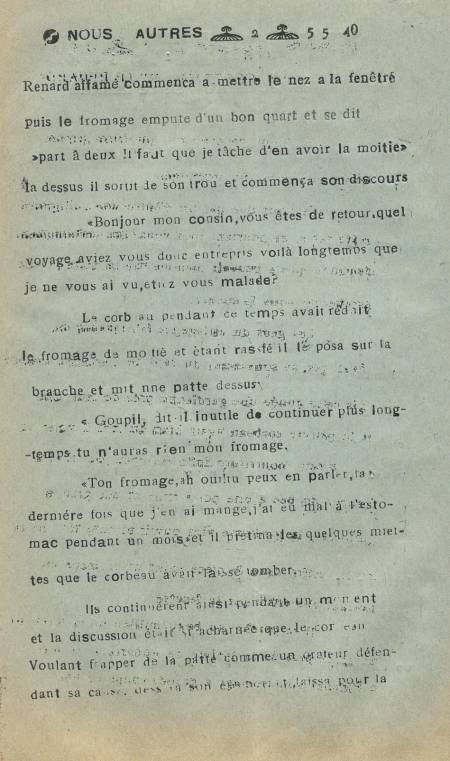 NOUS AUTRES 2 5 5 40
Renard affamé commenca a mettre le nez a la fenêtré
puis le fromage empute d'un bon quart et se dit
»part â deux !l faut que je tâche d'en avoir la moitie»
la dessus il sortit de son trou et commença son discours
«Bonjour mon consin,vous êtes de retour,quel
voyage aviez vous donc entrepris voilà longtemps que
je ne vous ai vu,etiez vous malade?
Le corb au pendant ce temps avait réduit
le fromage de mo tié et ètant ras sfé il le posa sur la
branche et mit nne patte dessus
« Goupil, dit-il inutile de continuer plus long-
-temps tu n'auras rien mon fromage.
«Ton fromage,ah oui!tu peux en parler,la
derniére fois que j'en ai mange,j'ai eu mal à l'esto-
mac pendant un mois»et il les quelques miet-
tes que le corbeau avait laissé tomber.
Ils continuérent ainsi pendant un moment
et la discussion était si acharnée que le cor eau
Voulant frapper de la patte comme un orateur défen-
dant sa cause laissa pour la